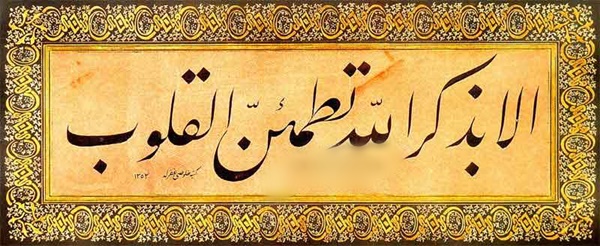 الا بذکر الله تطمئنّ القلوب
۱۳۵۲